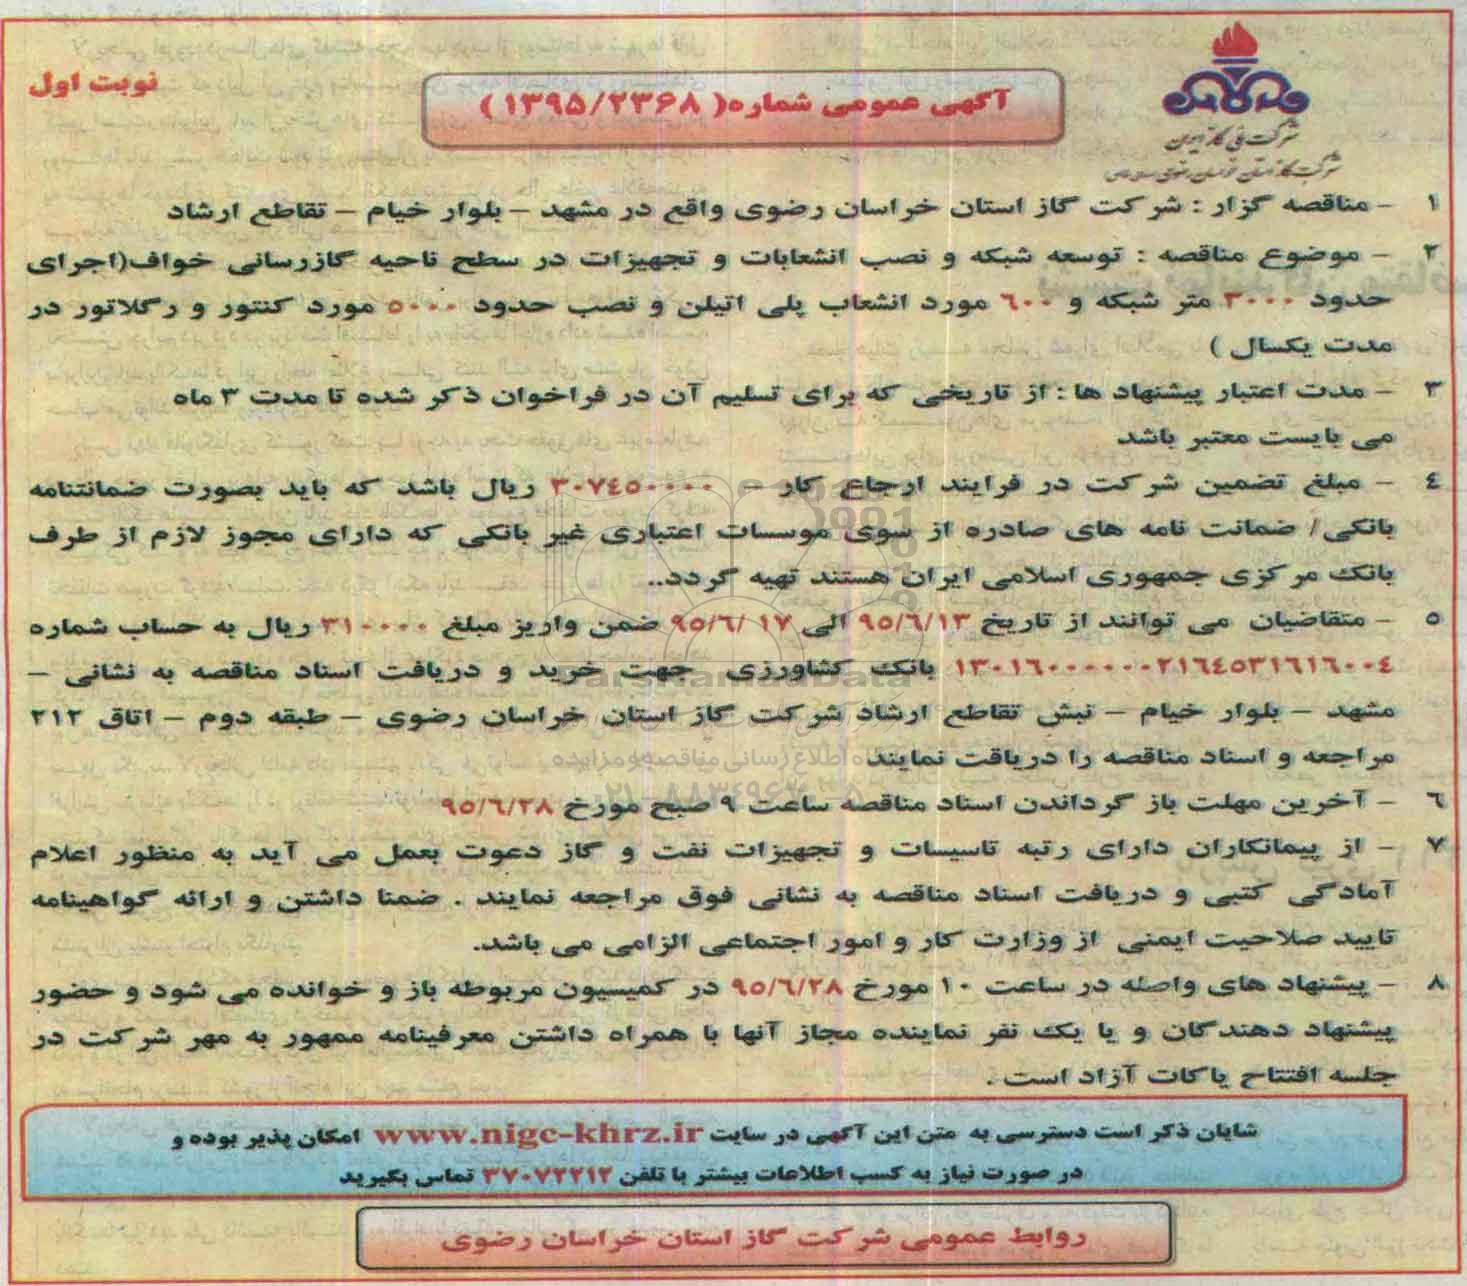 نوبت اول
آگهی عمومی شماره( ۱۳۹۵/۲۳۶۸ )
شرکت ملی گاز ایران
۱ – مناقصه گزار : شرکت گاز استان خراسان رضوی واقع در مشهد – بلوار خیام – تقاطع ارشاد
۲ – موضوع مناقصه : توسعه شبکه و نصب انشعابات و تجهیزات در سطح ناحیه گازرسانی خواف(اجرای
حدود ۳۰۰۰ متر شبکه و ۶۰۰ مورد انشعاب پلی اتیلن و نصب حدود ۵۰۰۰ مورد کنتور و رگلاتور در
مدت یکسال )
۳ – مدت اعتبار پیشنهاد ها : از تاریخی که برای تسلیم آن در فراخوان ذکر شده تا مدت ۳ ماه
می بایست معتبر باشد
٤ – مبلغ تضمین شرکت در فرایند ارجاع کار – ۳۰۷٤۵۰۰۰۰ ریال باشد که باید بصورت ضمانتنامه
بانکی/ ضمانت نامه های صادره از سوی موسسات اعتباری غیر بانکی که دارای مجوز لازم از طرف
بانک مرکزی جمهوری اسلامی ایران هستند تهیه گردد..
۵ – متقاضیان می توانند از تاریخ ۹۵/٦/۱۳ الی ۹۵/٦/ ۱۷ ضمن واریز مبلغ ۳۱۰۰۰۰ ریال به حساب شماره
بانک کشاورزی جهت خرید و دریافت اسناد مناقصه به نشانی –
مشهد – بلوار خیام – نبش تقاطع ارشاد شرکت گاز استان خراسان رضوی – طبقه دوم – اتاق ۲۱۲
مراجعه و اسناد مناقصه را دریافت نمایند
٦ – آخرین مهلت باز گرداندن اسناد مناقصه ساعت ۹ صبح مورخ ۹۵/٦/۲۸
۷ – از پیمانکاران دارای رتبه تاسیسات و تجهیزات نفت و گاز دعوت بعمل می آید به منظور اعلام
آمادگی کتبی و دریافت اسناد مناقصه به نشانی فوق مراجعه نمایند . ضمنا داشتن و ارائه گواهینامه
تایید صلاحیت ایمنی از وزارت کار و امور اجتماعی الزامی می باشد.
۸ – پیشنهاد های واصله در ساعت ۱۰ مورخ ۹۵/٦/۲۸ در کمیسیون مربوطه باز و خوانده می شود و حضور
پیشنهاد دهندگان و یا یک نفر نماینده مجاز آنها با همراه داشتن معرفینامه ممهور به مهر شرکت در
جلسه افتتاح پاکات آزاد است .
شایان ذکر است دسترسی به متن این آگهی در سایت www.nigc-khrz.ir امکان پذیر بوده و
در صورت نیاز به کسب اطلاعات بیشتر با تلفن ۳۷۰۷۲۲۱۲ تماس بگیرید
روابط عمومی شرکت گاز استان خراسان رضوی
ParsNamadData